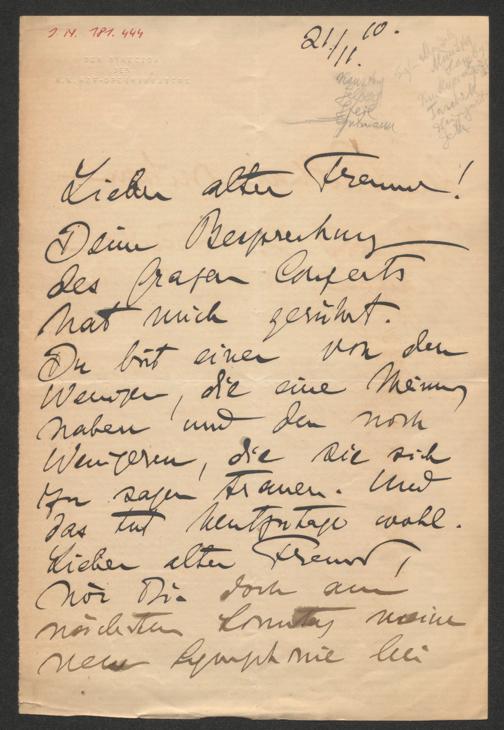 I N. 181.444
21/11. 10.
DER DIREKTOR
DES
K.K. HOF-OPERNTHEATERS
Lieber alter Freund!
Deine Besprechung
des Prager Conzerts
hat mich gerührt.
Du bist einer von den
Wenigen, die eine Meinung
haben und den noch
Wenigeren, die sie sich
zu sagen trauen. Und
das tut heutzutage wohl.
Lieber alter Freund,
hör Dir doch am
nächsten Sonntag meine
neue Symphonie bei